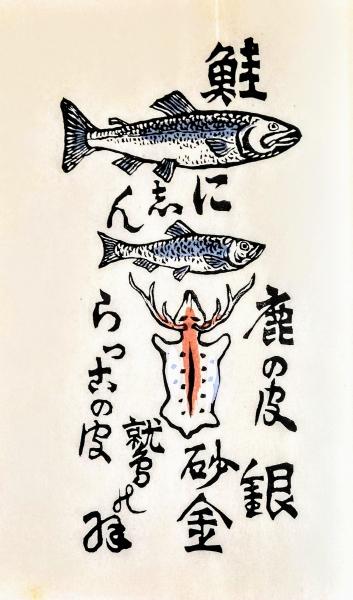 鮭
に志ん
鹿の皮
銀
砂金
らっこの皮
鷲の羽